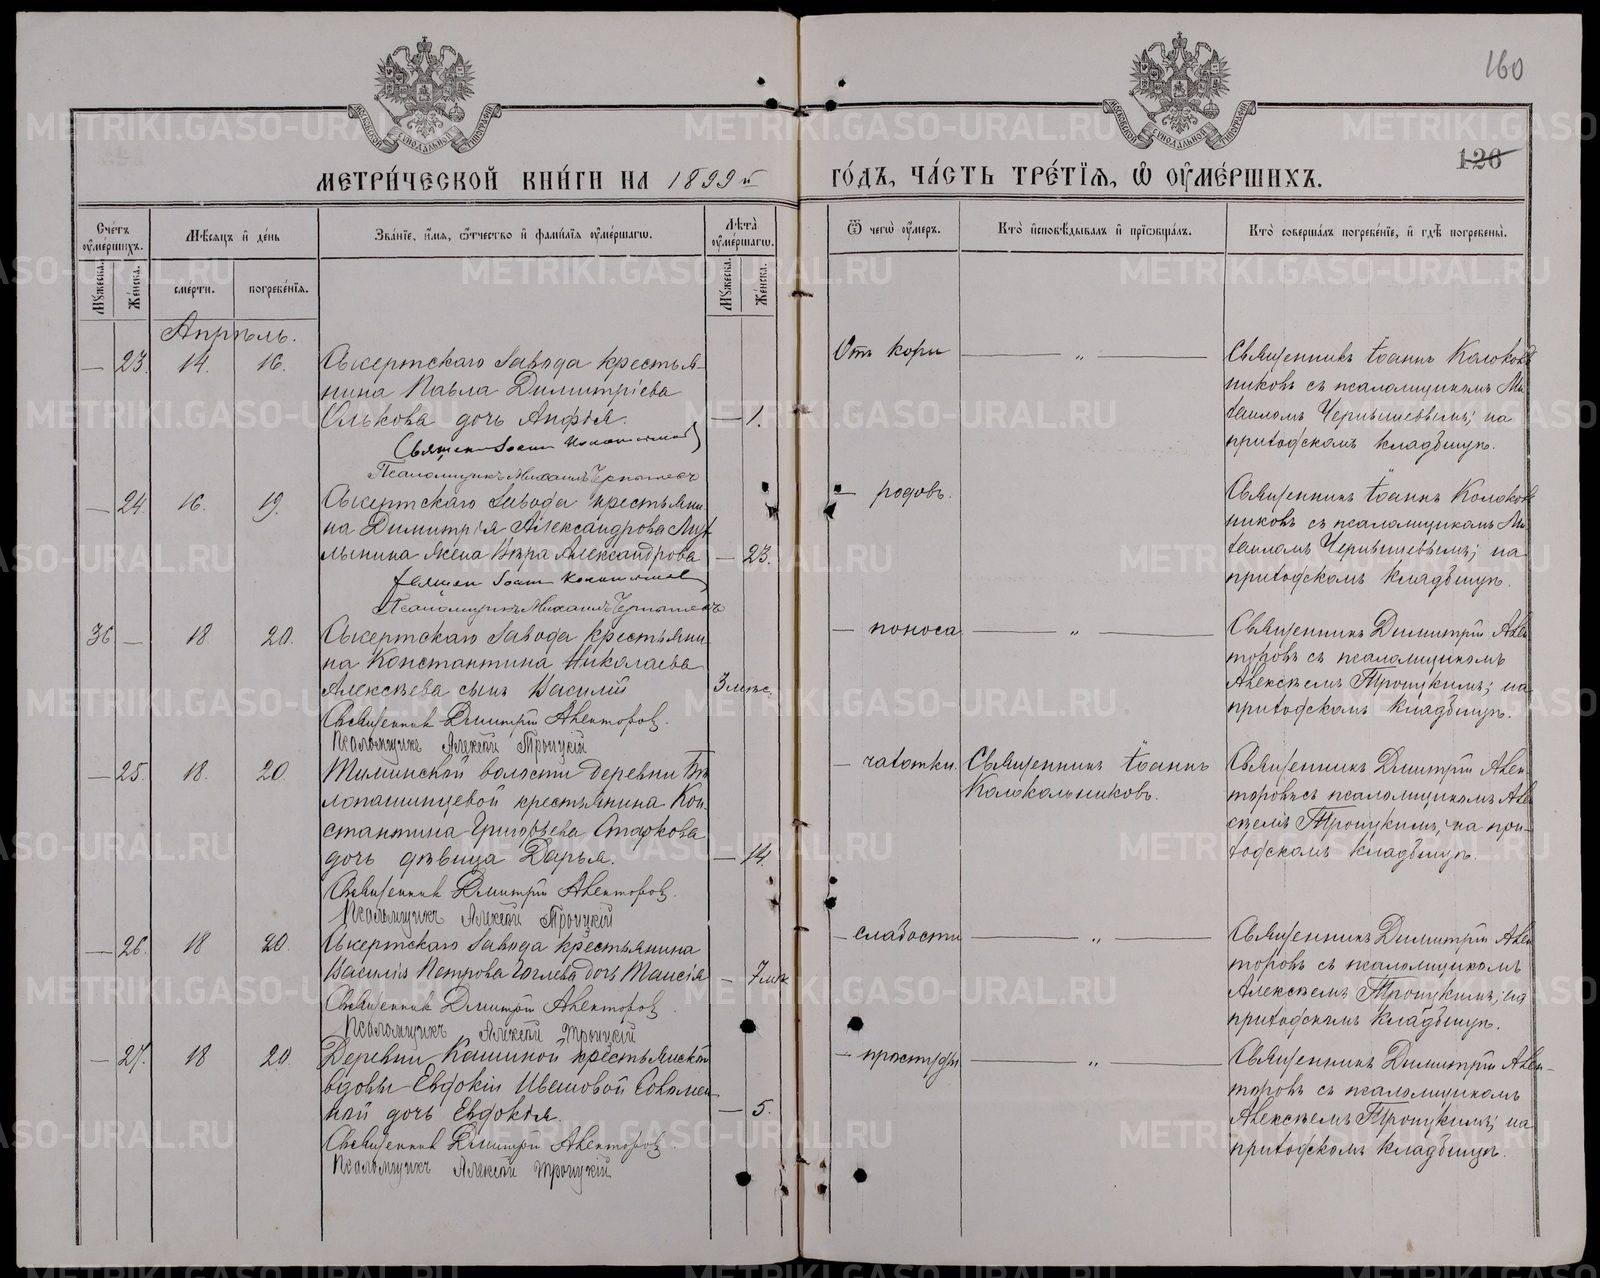 160
126
МЕТРИ́ЧЕСКОЙ КНИ́ГИ НА 1899й ГО́ДЪ, ЧА́СТЬ ТРЕ́ТІЯ, Ѡ҆ ОУ҆МЕ́РШИХЪ.
Сче́тъ оу҆ме́ршихъ.
Мѣ́сяцъ и҆ де́нь
Зва́нїе, и҆́мя, ѻ҆́тчество и҆ фами́лїя оу҆ме́ршагѡ.
Лѣ́та оу҆ме́ршагѡ.
Ѿ чегѡ̀ оу҆́меръ.
Кто̀ и҆сповѣ́дывалъ и҆ прїѡбща́лъ.
Кто̀ соверша́лъ погребе́нїе, и҆ гдѣ̀ погребены̀.
Мꙋ́жеска.
Же́нска.
сме́рти.
погребе́нїя.
Мꙋ́жеска.
Же́нска.
Апрѣль.
— 23. 14. 16. Сысертскаго Завода крестья-
нина Павла Димитріева
Олькова дочь Анфія. — 1.
Псаломщикъ Михаилъ Чернышевъ
Отъ кори — „ — Священникъ Іоаннъ Колоколь
никовъ съ псаломщикомъ Ми
хаиломъ Чернышевымъ; на
приходскомъ кладбищѣ.
— 24. 16. 19. Сысертскаго Завода крестьяни
на Димитрія Александрова
жена Вѣра Александрова — 23.
Псаломщикъ Михаилъ Чернышевъ
— родовъ. Священникъ Іоаннъ Колоколь
никовъ съ псаломщикомъ Ми
хаиломъ Чернышевымъ; на
приходскомъ кладбищѣ.
36 — 18 20. Сысертскаго Завода крестьяни
на Константина Николаева
Алексѣева сынъ Василій 3 мѣс.
Священник Димитрій Авенторов.
Псаломщикъ Алексѣй Троицкій
— поноса — „ — Священникъ Димитрій Авен
торовъ съ псаломщикомъ
Алексѣемъ Троицкимъ; на
приходскомъ кладбищѣ.
— 25. 18. 20. волости деревни Бѣ
лопашинцевой крестьянина Кон
стантина Григорьева Старкова
дочь дѣвица Дарья. — 14.
Священник Димитрій Авенторов.
Псаломщикъ Алексѣй Троицкій
— чахотки. Священникъ Іоаннъ
Колокольниковъ.
Священникъ Димитрій Авен-
торовъ съ псаломщикомъ Алек
сѣемъ Троицкимъ, на при-
ходскомъ кладбищѣ.
— 26. 18 20. Сысертскаго Завода крестьянина
Василія Петрова дочь Таисія — 7 мѣс
Священник Димитрій Авенторов.
Псаломщикъ Алексѣй Троицкій
— слабости — „ — Священникъ Димитрій Авен
торовъ съ псаломщикомъ
Алексѣемъ Троицкимъ; на
приходскомъ кладбищѣ.
— 27. 18 20. Деревни Кашиной крестьянской
вдовы Евдокіи Ивашовой Соломен-
ной дочь Евдокія. — 5.
Священник Димитрій Авенторов.
Псаломщикъ Алексѣй Троицкій
— простуды — „ — Священникъ Димитрій Авен-
торовъ съ псаломщикомъ
Алексѣемъ Троицкимъ; на
приходскомъ кладбищѣ.